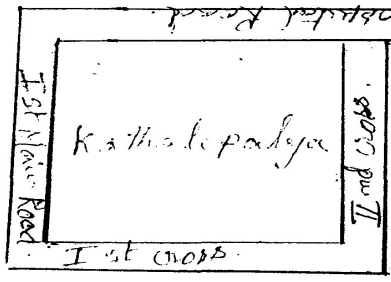 Hospital Road.
Ist Main Road.
Kathalepalya
II nd cross.
I st cross.